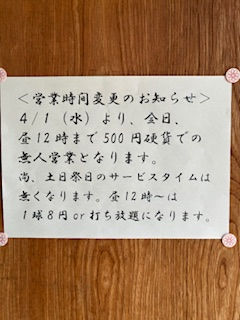 ＜営業時間変更のお知らせ＞
4/1（水）より、全日、
昼12時まで500円硬貨での
無人営業となります。
尚、土日祭日のサービスタイムは
無くなります。昼12時〜は
1球8円or打ち放題になります。